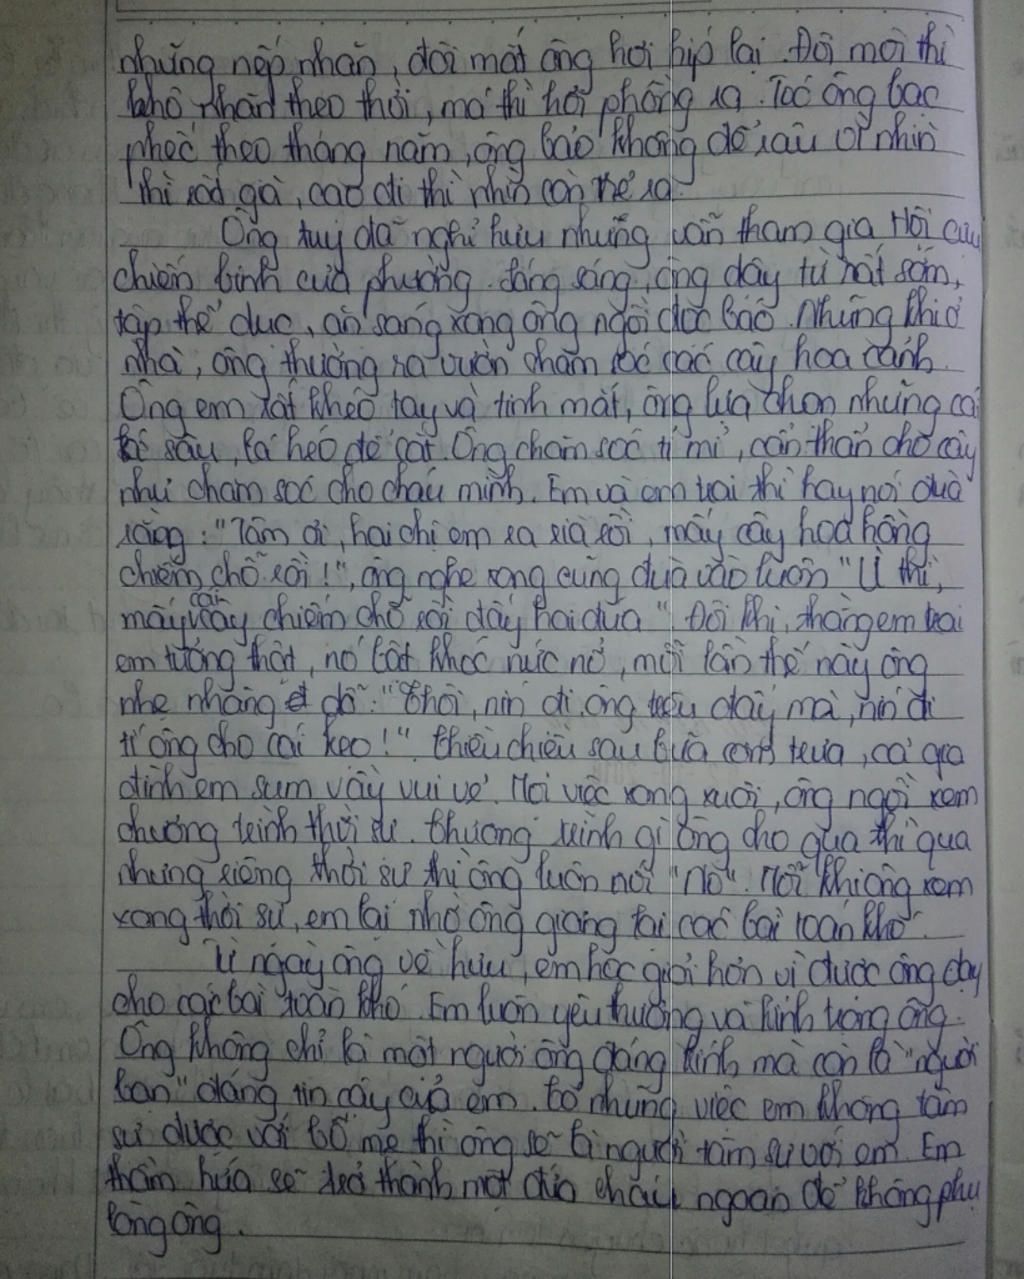 những nếp nhăn, đôi mắt ông hơi híp lại. Đôi môi thì
khô nhăn theo thời, má thì hơi phồng ra. Tóc ông bạc
phếc theo tháng năm, ông bảo không để râu vì nhìn
thì rất già, cạo đi thì nhìn còn trẻ ra.
Ông tuy đã nghỉ hưu nhưng vẫn tham gia Hội cựu
chiến binh của phường. Sáng sáng, ông dậy từ rất sớm,
tập thể dục, ăn sáng xong ông ngồi đọc báo. Những khi ở
nhà, ông thường ra vườn chăm sóc các cây hoa cảnh.
Ông em rất khéo tay và tinh mắt, ông lựa chọn những cái
sâu, lá héo để cắt. Ông chăm sóc tỉ mỉ, cẩn thận cho cây
như chăm sóc cho cháu mình. Em và em trai thì hay nói đùa
rằng: "Tâm ơi, hai chị em ra rìa rồi, mấy cây hoa hồng
chiếm chỗ rồi!", ông nghe xong cũng đùa vào luôn "Ừ thì,
mấy cái cây chiếm chỗ rồi đấy hai đứa". Đôi khi, thằng em trai
em tưởng thật, nó bật khóc nức nở, mỗi lần thế này ông
nhẹ nhàng dỗ: "Thôi, nín đi, ông trêu đấy mà, nín đi
tí ông cho cái kẹo!" Chiều chiều sau bữa cơm trưa, cả gia
đình em sum vầy vui vẻ. Mọi việc xong xuôi, ông ngồi xem
chương trình thời sự. Chương trình gì ông cho qua thì qua
nhưng riêng thời sự thì ông luôn nói "Nô". Mỗi khi ông xem
xong thời sự, em lại nhờ ông giảng lại các bài toán khó.
Từ ngày ông về hưu, em học giỏi hơn vì được ông dạy
cho các bài toán khó. Em luôn yêu thương và kính trọng ông.
Ông không chỉ là một người ông đáng kính mà còn là "người
bạn" đáng tin cậy của em. Có những việc em không tâm
sự được với bố mẹ thì ông sẽ là người tâm sự với em. Em
thầm hứa sẽ trở thành một đứa cháu ngoan để không phụ
lòng ông.